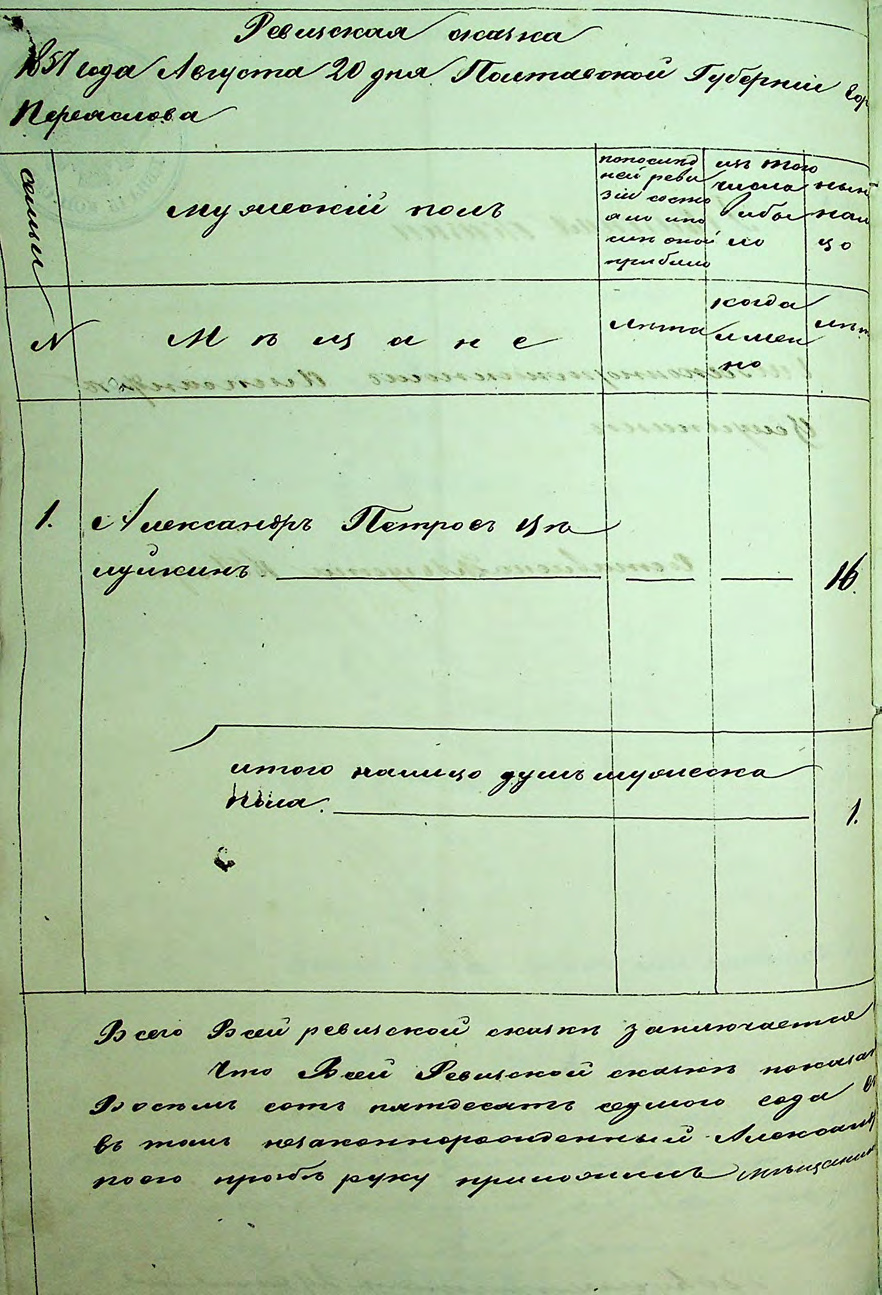 Ревизская сказка
1857 года Августа 20 дня Полтавской Губерніи гор
Переяслова
семьи
мужескій полъ
по послед
ней реви
зіи состо
яло или
после оной
прибыло
изъ того
числа
выбы
ло
ныне
нали
цо
N
М ѣ щ а н е
лета
когда
имен
но
лет
1.
Александръ Петровъ Цѣ
луйкинъ
16.
итого налицо душъ мужеска
пола.
1.
Всего Всей ревизской сказкѣ заключается
Что Всей Ревизской сказкѣ показа
Восемь сотъ пятдесятъ седмого года
въ томъ незаконнорожденный Александ
поего прозбѣ руку приложилъ мѣщанин